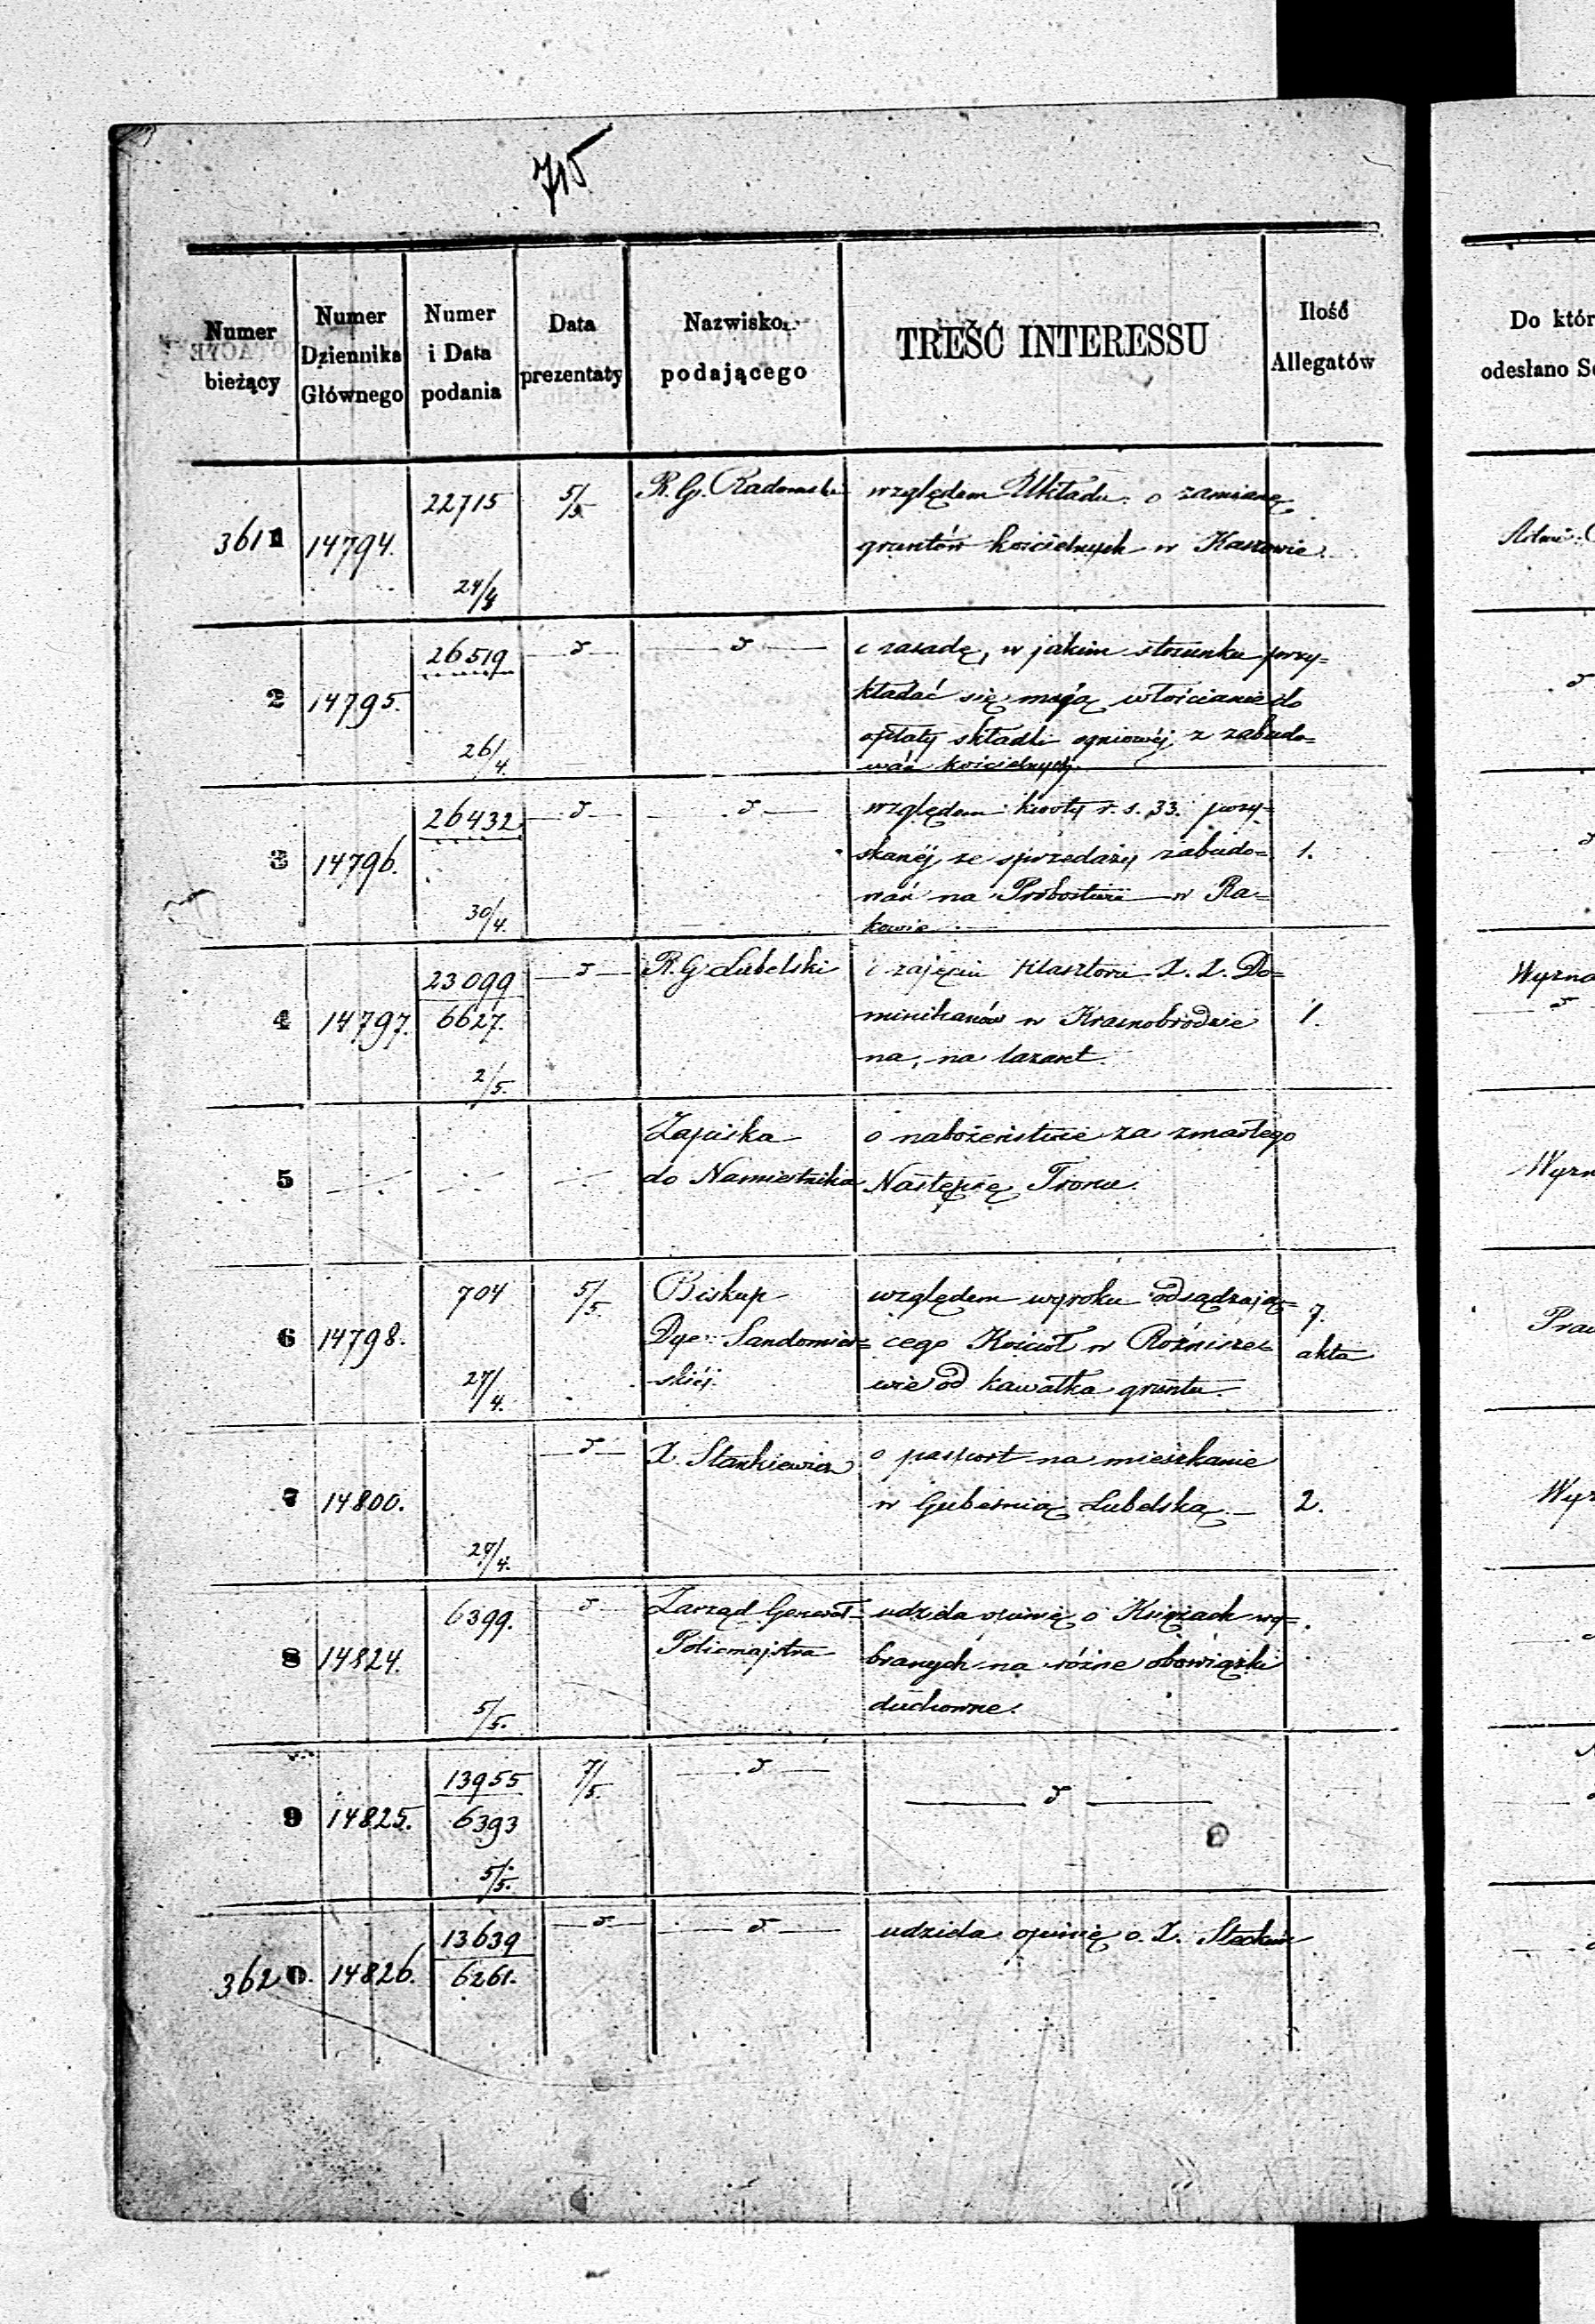 715
Numer bieżący
Numer Dziennika Głównego
Numer i Data podania
Data prezentaty
Nazwisko podającego
TREŚĆ INTERESSU
Ilość Allegatów
Do któr
odesłano Se
3611 14794. 22715 24/4 5/5 R. G. Radomski
względem Układu o zamianę
gruntów kościelnych w Kaszowie.
2 14795. 26519 26/4.
i zasadę, w jakim stosunku przy=
kładać się mają włościanie do
opłaty składki ogniowéj z zabudo=
wań kościelnych.
3 14796. 26432 30/4.
względem kwoty r. s. 33. pozy=
skanéj ze sprzedaży zabudo=
wań na Probostwie w Ra=
kowie
1.
4 14797. 23099 6627. 2/5. R. G. Lubelski
zajęciu Klasztoru X. X. Do=
minikanów w Krasnobrodzie
na, na lazaret.
1.
Wyzna
5
Zapiska
do Namiestnika
o nabożeństwie za zmarłego
Następcę Tronu.
Wyzn
6 14798. 704 27/4. 5/5.
Biskup
Dye. Sandomier=
skiéj.
względem wyroku odsądzają=
cego Kościoł w Roznisze=
wie od kawałka gruntu.
7.
akta
Praw
7 14800. 27/4. X. Stankiewicz
o paszport na mieszkanie
w Gubernią Lubelską.
2.
Wyz
8 14824. 6399. 5/5.
Zarząd Generał=
Policmajstra
udziela opinię o Księżach wy=
branych na różne obowiązki
duchowne.
9 14825. 13955 6393 5/5. 7/5.
3620. 14826. 13639 6261.
udziela opinię o X.